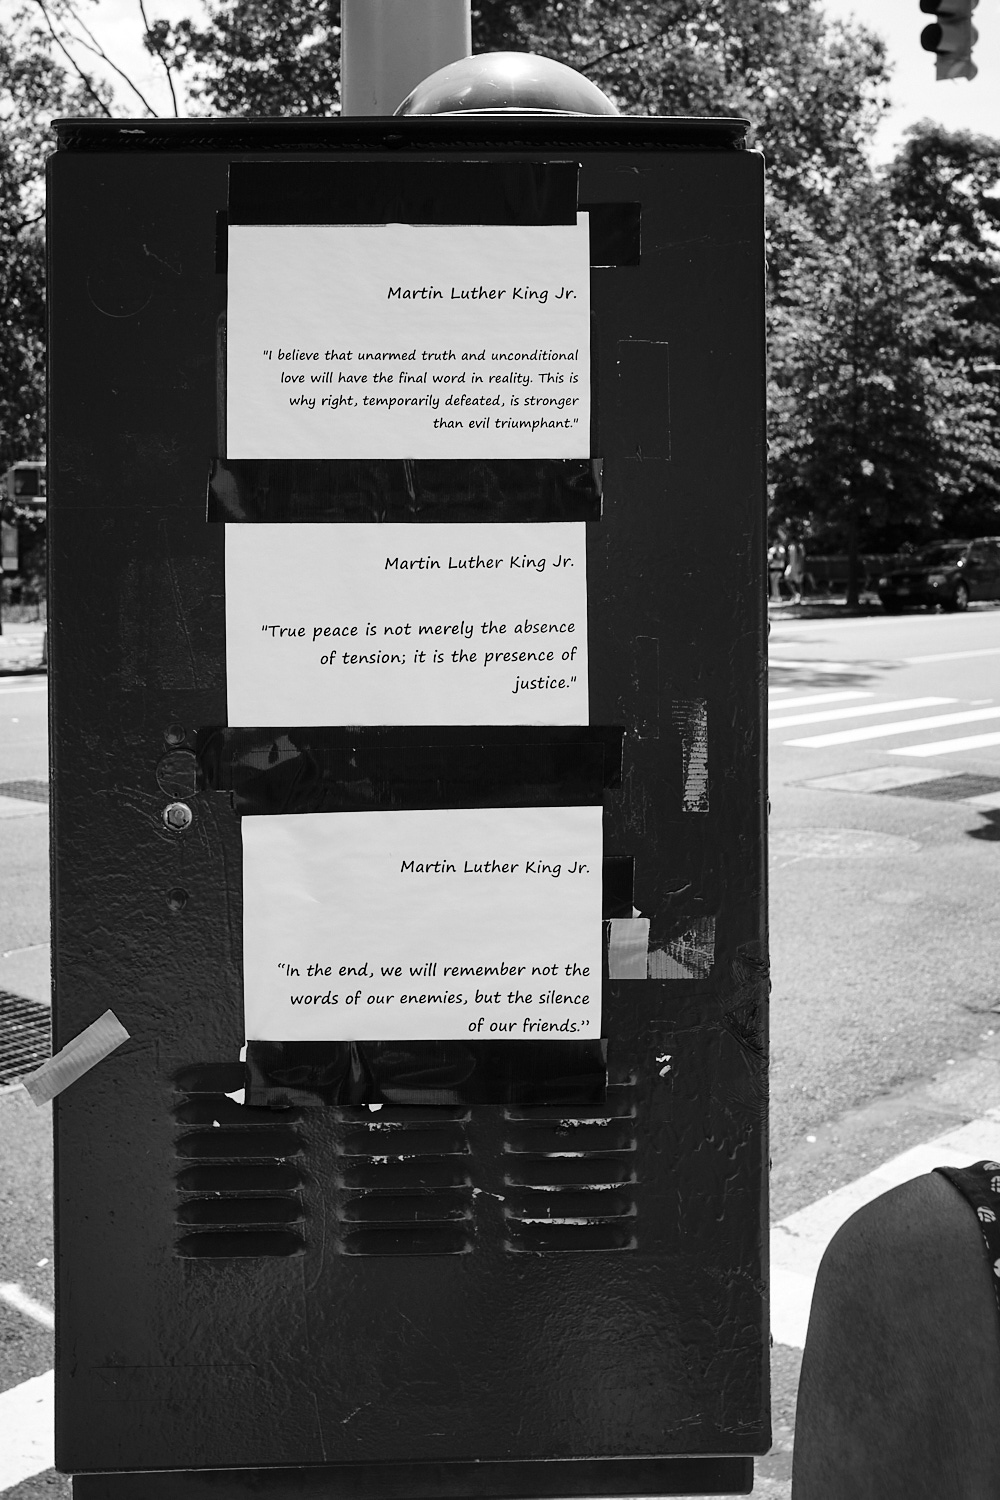 Martin Luther King Jr.
"I believe that unarmed truth and unconditional
love will have the final word in reality. This is
why right, temporarily defeated, is stronger
than evil triumphant."
Martin Luther King Jr.
"True peace is not merely the absence
of tension; it is the presence of
justice."
Martin Luther King Jr.
“In the end, we will remember not the
words of our enemies, but the silence
of our friends.”